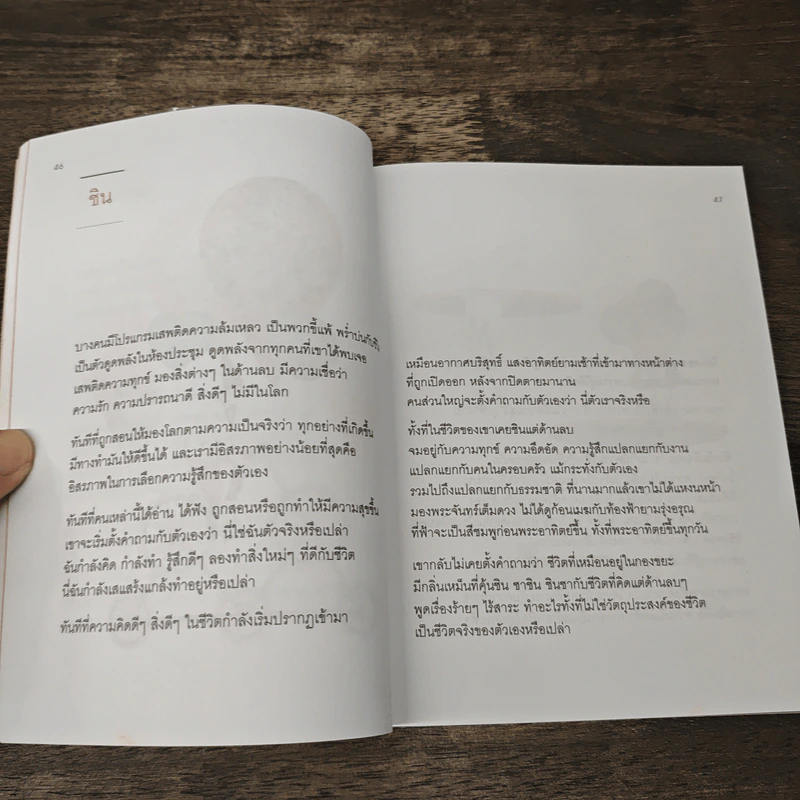 46
ชิน
บางคนมีโปรแกรมเสพติดความล้มเหลว เป็นพวกขี้แพ้ พร่ำบ่นกับชีวิต
เป็นตัวดูดพลังในห้องประชุม ดูดพลังจากทุกคนที่เขาได้พบเจอ
เสพติดความทุกข์ มองสิ่งต่างๆ ในด้านลบ มีความเชื่อว่า
ความรัก ความปรารถนาดี สิ่งดีๆ ไม่มีในโลก
ทันทีที่ถูกสอนให้มองโลกตามความเป็นจริงว่า ทุกอย่างที่เกิดขึ้น
มีทางทำมันให้ดีขึ้นได้ และเรามีอิสรภาพอย่างน้อยที่สุดคือ
อิสรภาพในการเลือกความรู้สึกของตัวเอง
ทันทีที่คนเหล่านี้ได้อ่าน ได้ฟัง ถูกสอนหรือถูกทำให้มีความสุขขึ้น
เขาจะเริ่มตั้งคำถามกับตัวเองว่า นี่ใช่ฉันตัวจริงหรือเปล่า
ฉันกำลังคิด กำลังทำ รู้สึกดีๆ ลองทำสิ่งใหม่ๆ ที่ดีกับชีวิต
นี่ฉันกำลังเสแสร้งแกล้งทำอยู่หรือเปล่า
ทันทีที่ความคิดดีๆ สิ่งดีๆ ในชีวิตกำลังเริ่มปรากฏเข้ามา
47
เหมือนอากาศบริสุทธิ์ แสงอาทิตย์ยามเช้าที่เข้ามาทางหน้าต่าง
ที่ถูกเปิดออก หลังจากปิดตายมานาน
คนส่วนใหญ่จะตั้งคำถามกับตัวเองว่า นี่ตัวเราจริงหรือ
ทั้งที่ในชีวิตของเขาเคยชินแต่ด้านลบ
จมอยู่กับความทุกข์ ความอึดอัด ความรู้สึกแปลกแยกกับงาน
แปลกแยกกับคนในครอบครัว แม้กระทั่งกับตัวเอง
รวมไปถึงแปลกแยกกับธรรมชาติ ที่นานมากแล้วเขาไม่ได้แหงนหน้า
มองพระจันทร์เต็มดวง ไม่ได้ดูก้อนเมฆกับท้องฟ้ายามรุ่งอรุณ
ที่ฟ้าจะเป็นสีชมพูก่อนพระอาทิตย์ขึ้น ทั้งที่พระอาทิตย์ขึ้นทุกวัน
เขากลับไม่เคยตั้งคำถามว่า ชีวิตที่เหมือนอยู่ในกองขยะ
มีกลิ่นเหม็นที่คุ้นชิน ชาชิน ชินชากับชีวิตที่คิดแต่ด้านลบๆ
พูดเรื่องร้ายๆ ไร้สาระ ทำอะไรทั้งที่ไม่ใช่วัตถุประสงค์ของชีวิต
เป็นชีวิตจริงของตัวเองหรือเปล่า